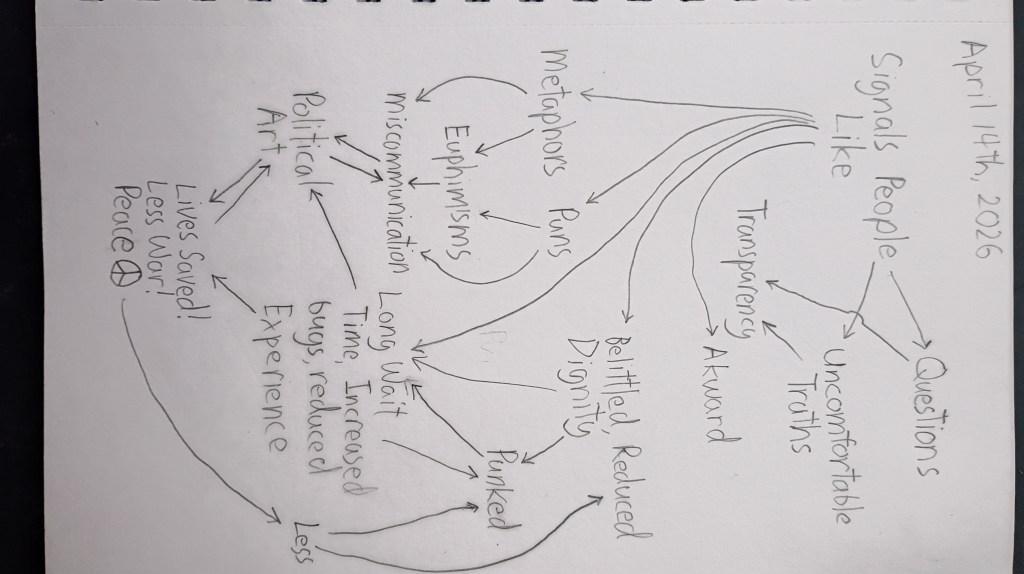 April 14th, 2026
Signals People
Like
Questions
Uncomfortable
Truths
Transparency
Akward
Metaphors
Puns
Belittled, Reduced
Dignity
Euphimisms
Punked
miscommunication
Long Wait
Time, Increased
bugs, reduced
Experience
Political
Art
Lives Saved!
Less War!
Peace ☮
Less